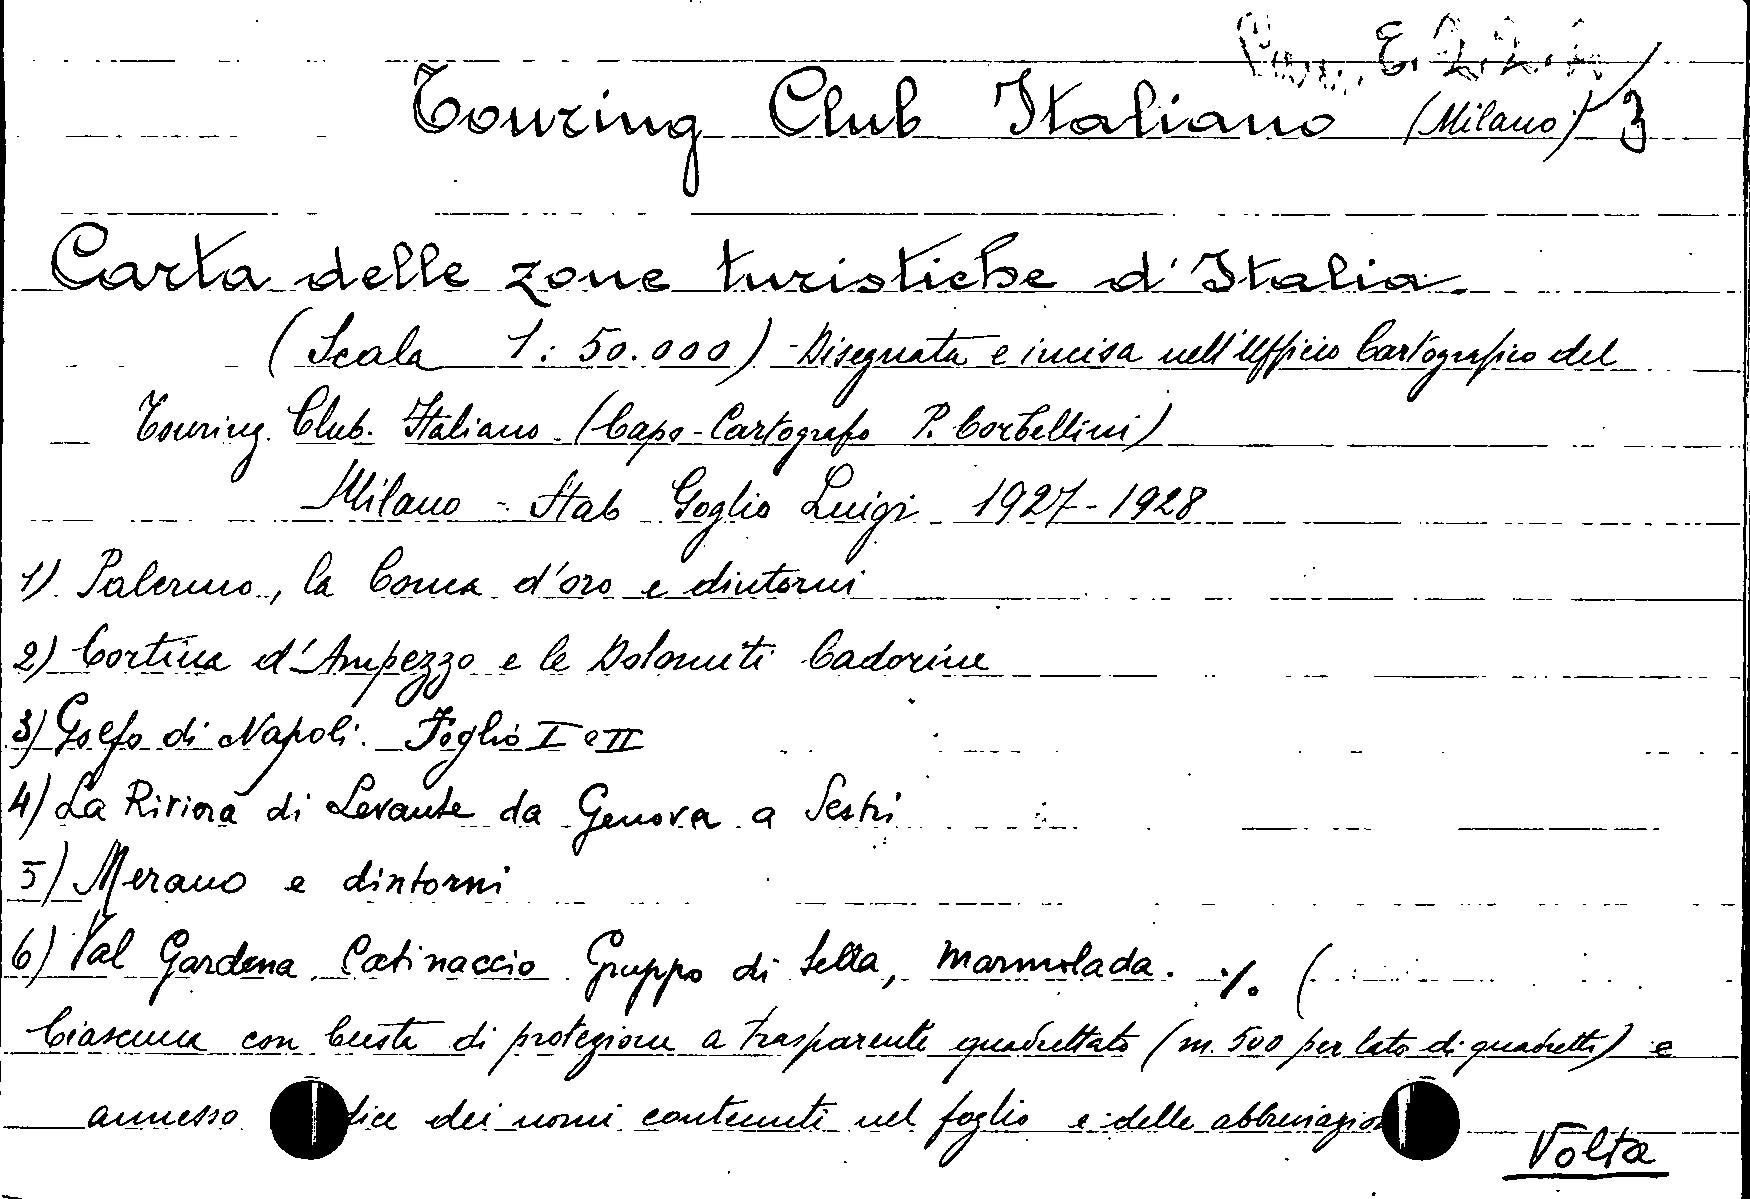 E. 2.2. /3
Touring Club Italiano (Milano)
Carta delle zone turistiche d'Italia.
(Scala 1:50.000) - Disegnata e incisa nell'Ufficio Cartografico del
Touring Club Italiano (Capo-Cartografo P. Corbellini)
Milano - Stab Goglio Luigi 1927-1928
1) Palermo, la Conca d'oro e dintorni
2) Cortina d'Ampezzo e le Dolomiti Cadorine
3) Golfo di Napoli. Foglio I e II
4) La Riviera di Levante da Genova a Sestri
5) Merano e dintorni
6) Val Gardena Catinaccio Gruppo di Sella, Marmolada. ·/. (
Ciascuna con busta di protezione a trasparente quadrettato (m. 500 per lato di quadretti) e
annesso dice dei nomi contenuti nel foglio e delle abbreviazion
Volta